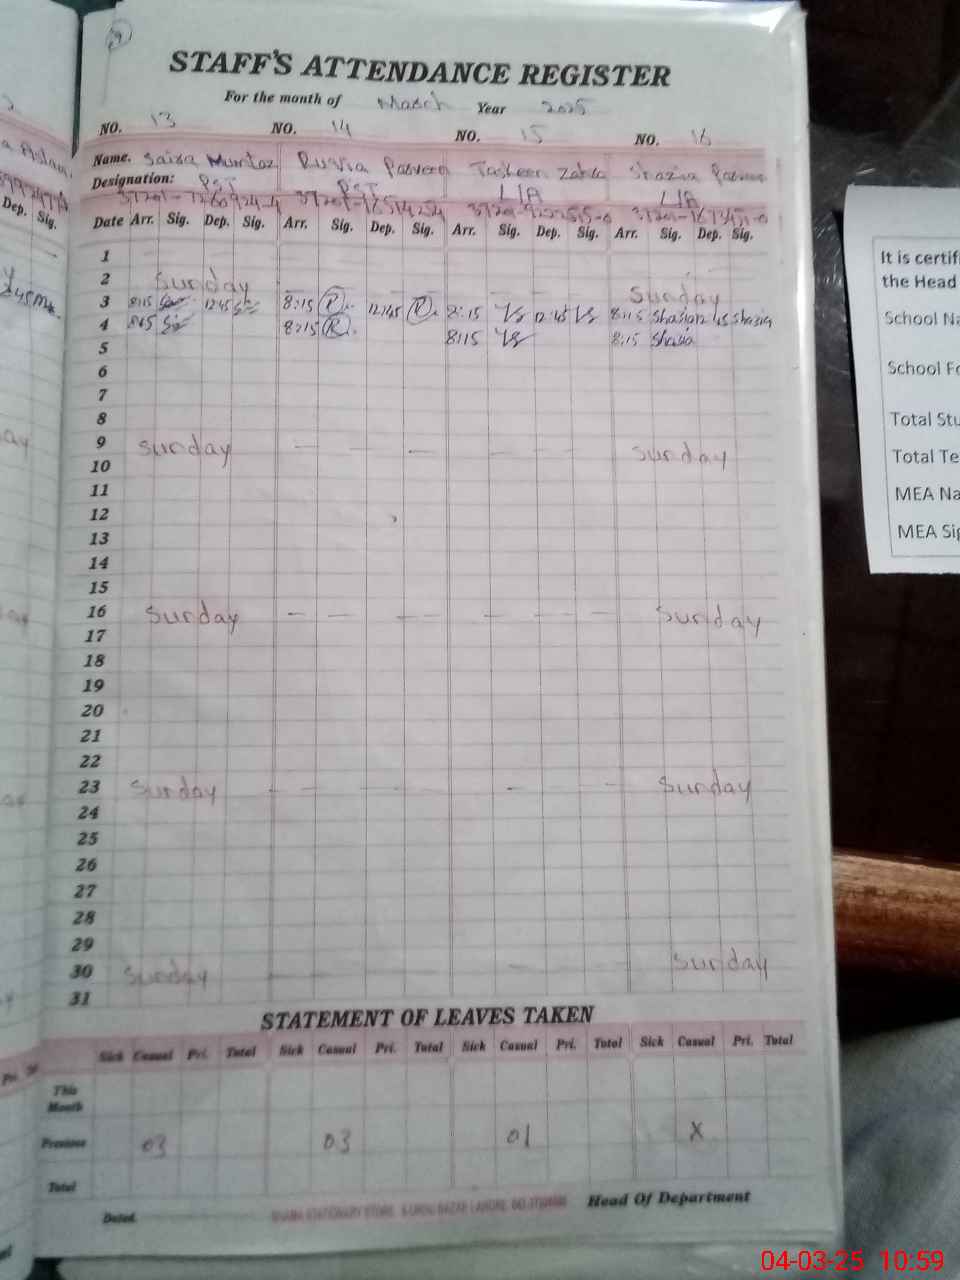 19
STAFF'S ATTENDANCE REGISTER
For the month of March Year 2025
NO. 13 NO. 14 NO. 15 NO. 16
Name. Saira Mumtaz Parveen Zahra Shazia Parveen
Designation: PST PST
Date Arr. Sig. Dep. Sig. Arr. Sig. Dep. Sig. Arr. Sig. Dep. Sig. Arr. Sig. Dep. Sig.
Dep. Sig.
1
2 Sunday Sunday
3 8:15 12:45 8:15 R. 12:45 R. 8:15 12:45 8:15 Shazia 12:45 Shazia
4 8:15 8:15 R. 8:15 8:15 Shazia
5
6
7
8
9 Sunday — — — — — — Sunday
10
11
12
13
14
15
16 Sunday — — — — — — — Sunday
17
18
19
20
21
22
23 Sunday — — — — — — — Sunday
24
25
26
27
28
29
30 Sunday Sunday
31
STATEMENT OF LEAVES TAKEN
Sick Casual Pri. Total Sick Casual Pri. Total Sick Casual Pri. Total Sick Casual Pri. Total
This
Month
Previous 03 03 01 X
Total
Dated Head Of Department
It is certif
the Head
School Na
School Fo
Total Stu
Total Te
MEA Na
MEA Sig
04-03-25 10:59